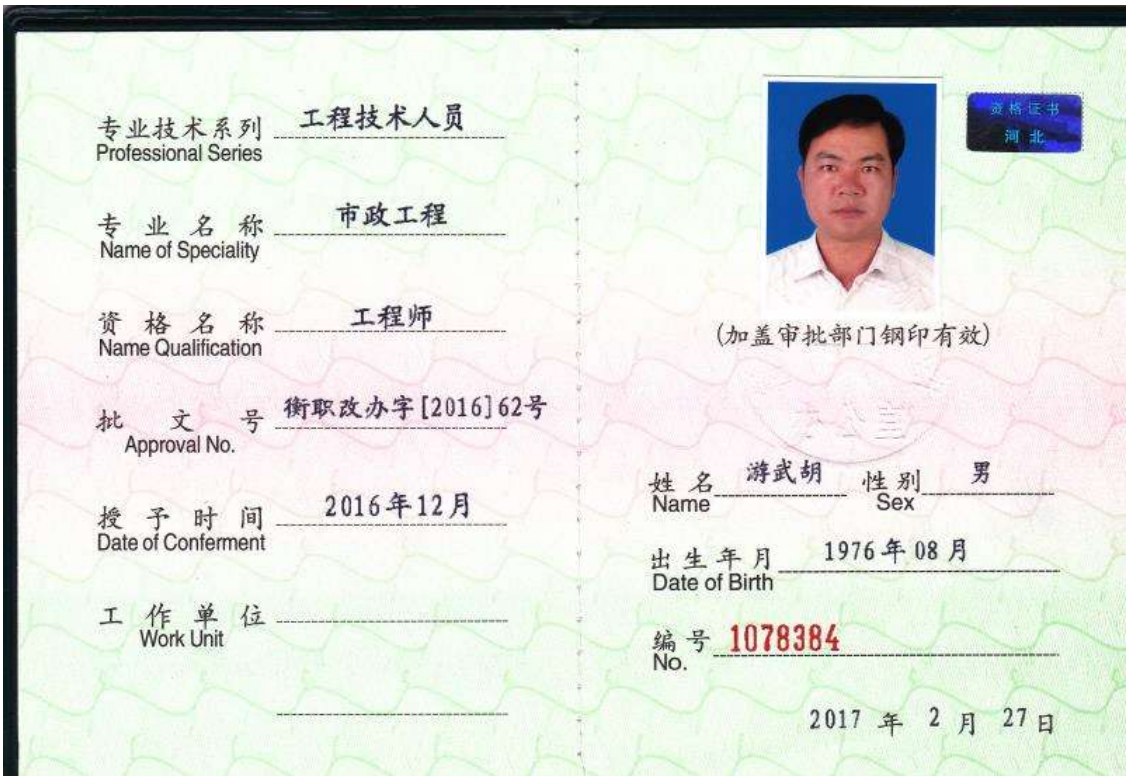 专业技术系列 工程技术人员
Professional Series
专业名称 市政工程
Name of Speciality
资格名称 工程师
Name Qualification
批文号 衡职改办字[2016]62号
Approval No.
授予时间 2016年12月
Date of Conferment
工作单位
Work Unit
资格证书
河北
(加盖审批部门钢印有效)
办公室
姓名 游武胡 性别 男
Name Sex
出生年月 1976年08月
Date of Birth
编号 1078384
No.
2017 年 2 月 27日